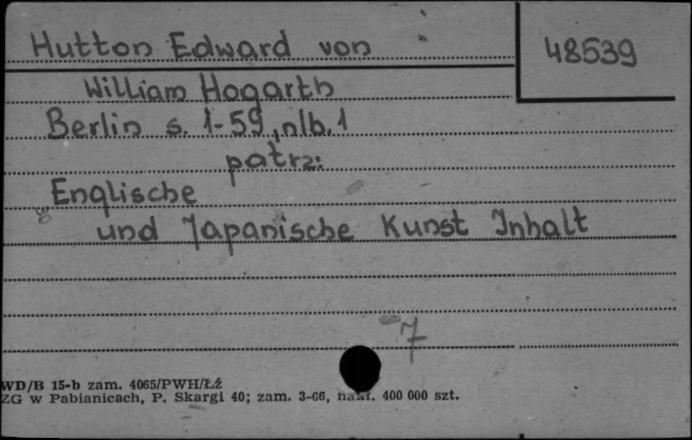 Hutton Edward von
48539
William Hogarth
Berlin s. 1-59, nlb. 1
patrz:
Englische
und Japanische Kunst Inhalt
7
WD/B 15-b zam. 4065/PWH/Łź
ZG w Pabianicach, P. Skargi 40; zam. 3-66, nakł. 400 000 szt.